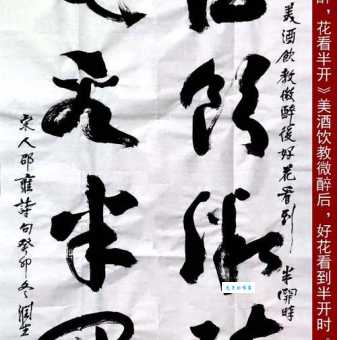 醉，花看半开》美酒饮教微醉后，好花看到半开时。
美酒飲教微醉後好花看到半開時
酒飲微醉
花看半開
宋人邵雍詩句癸卯冬潤生